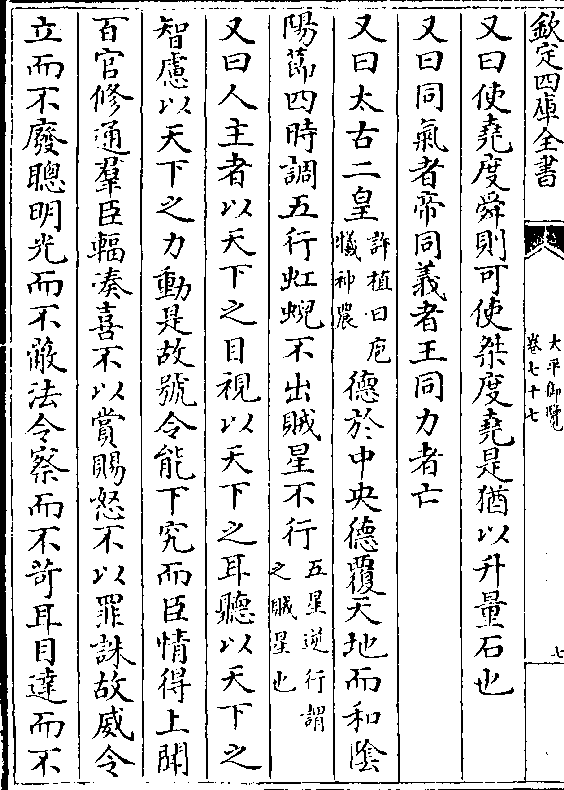 欽定四庫全書
太平御覽
卷七十七
七
又曰使堯度舜則可使桀度堯是猶以升量石也
又曰同氣者帝同義者王同力者亡
又曰太古二皇許植曰庖犧神農德於中央德覆天地而和陰
陽節四時調五行虹蜺不出賊星不行五星逆行謂之賊星也
又曰人主者以天下之目視以天下之耳聽以天下之
智慮以天下之力動是故號令能下究而臣情得上聞
百官修通羣臣輻湊喜不以賞賜怒不以罪誅故威令
立而不廢聰明光而不蔽法令察而不苛耳目達而不